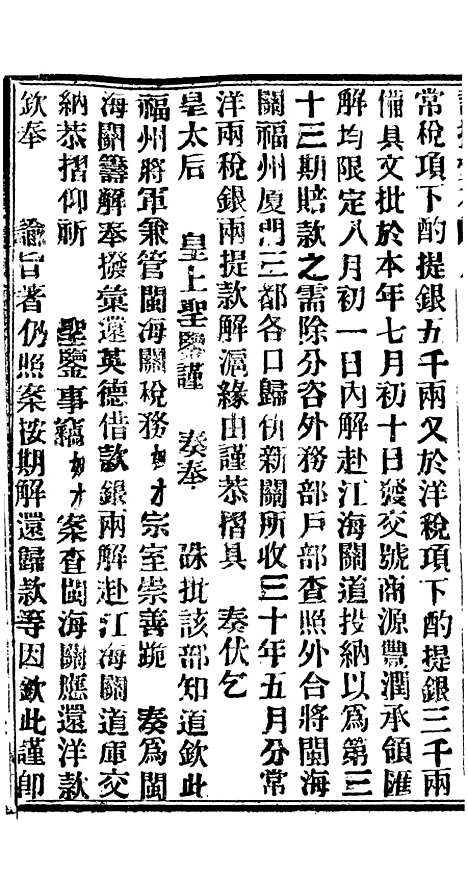 常稅項下酌提銀五千兩又於洋稅項下酌提銀三千兩
備具文批於本年七月初十日發交號商源豐潤承領匯
解均限定八月初一日內解赴江海關道投納以爲第三
十三期賠款之需除分咨外務部戶部查照外合將閩海
關福州廈門三都各口歸併新關所收三十年五月分常
洋兩稅銀兩提款解滬緣由謹恭摺具　奏伏乞
皇太后　皇上聖鑒謹　奏奉　硃批該部知道欽此
福州將軍兼管閩海關稅務奴才宗室崇善跪　奏爲閩
海關籌解奉撥彙還英德借款銀兩解赴江海關道庫交
納恭摺仰祈　聖鑒事竊奴才案查閩海關應還洋款
欽奉　諭旨著仍照案按期解還歸款等因欽此謹卽